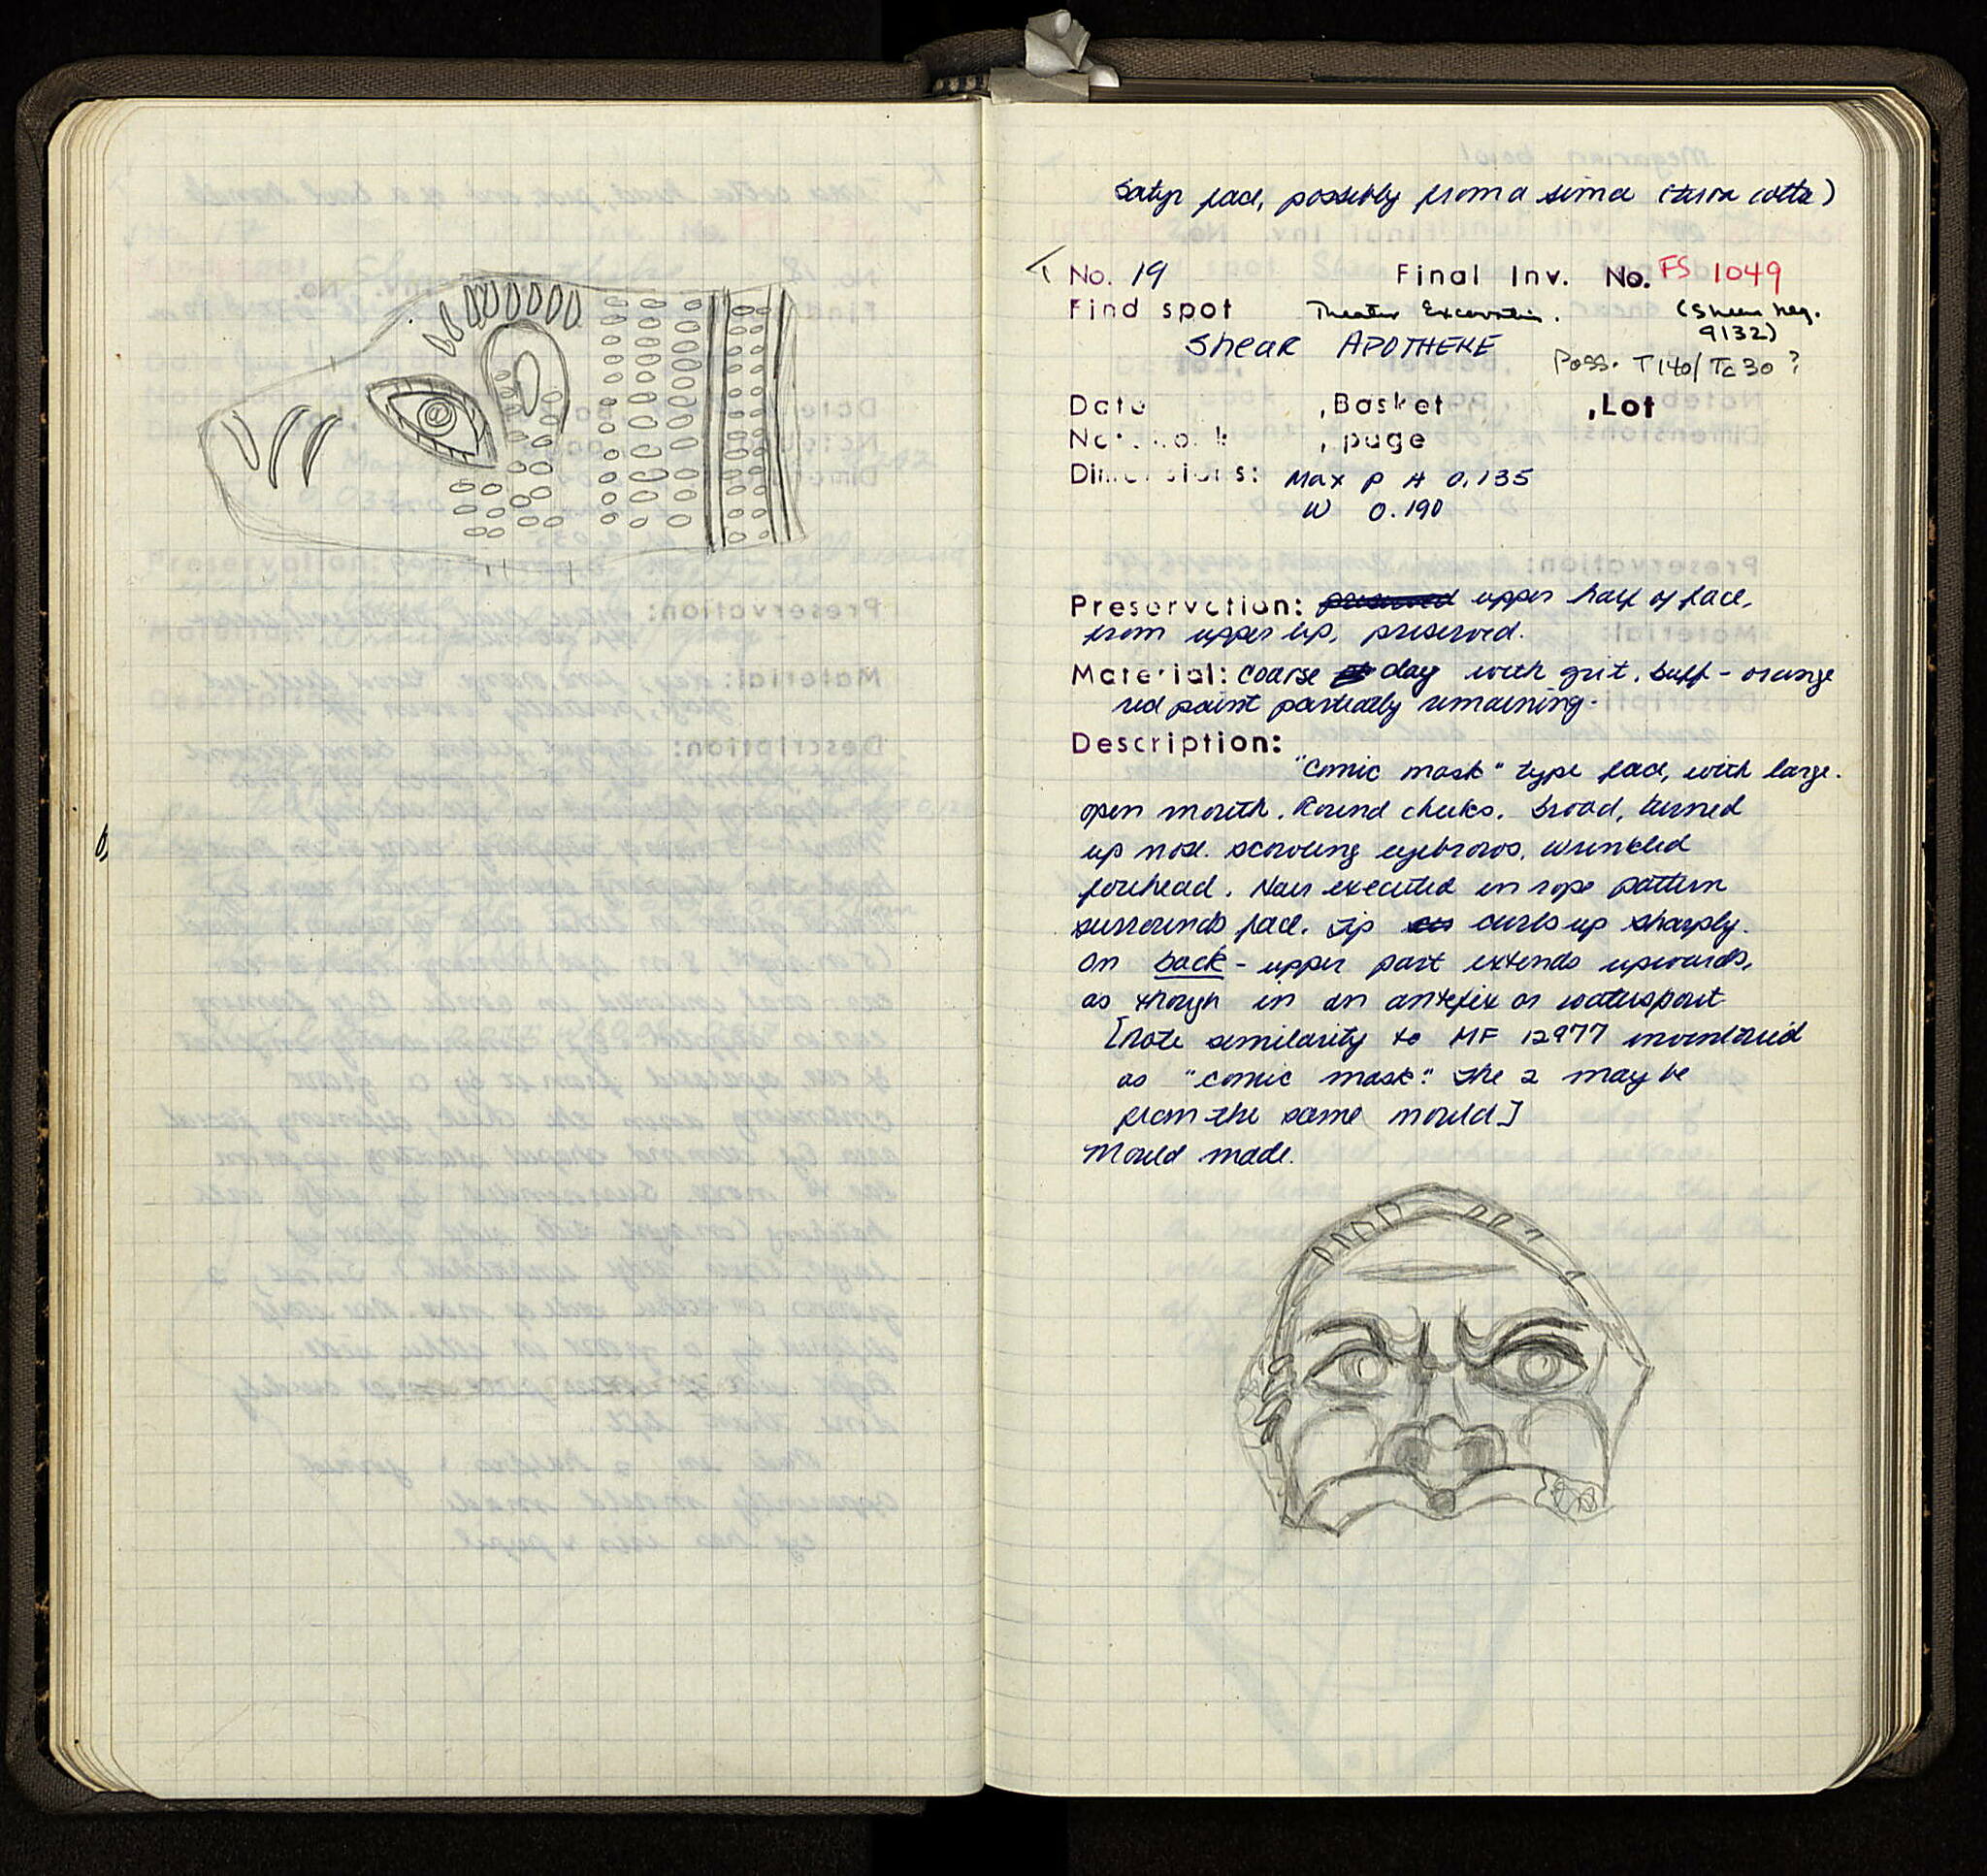 Satyr face, possibly from a sima (terra cotta)
No. 19 Final Inv. No. FS 1049
Find spot Theater Excavation. (Shear neg. 9132)
Shear APOTHEKE Poss. T140/Tc30?
Date , Basket , Lot
Notebook , page
Dimensions: Max P H 0.135
W 0.190
Preservation: preserved upper half of face,
from upper lip, preserved.
Material: coarse clay with grit. buff-orange
red paint partially remaining.
Description:
"Comic mask" type face, with large.
open mouth. Round cheeks. broad, turned
up nose. scowling eyebrows. wrinkled
forehead. Hair executed in rope pattern
surrounds face. Lip curls up sharply.
On back - upper part extends upwards,
as though in an antefix or waterspout
[Note similarity to MF 12977 inventoried
as "comic mask". The 2 may be
from the same mould]
Mould made.